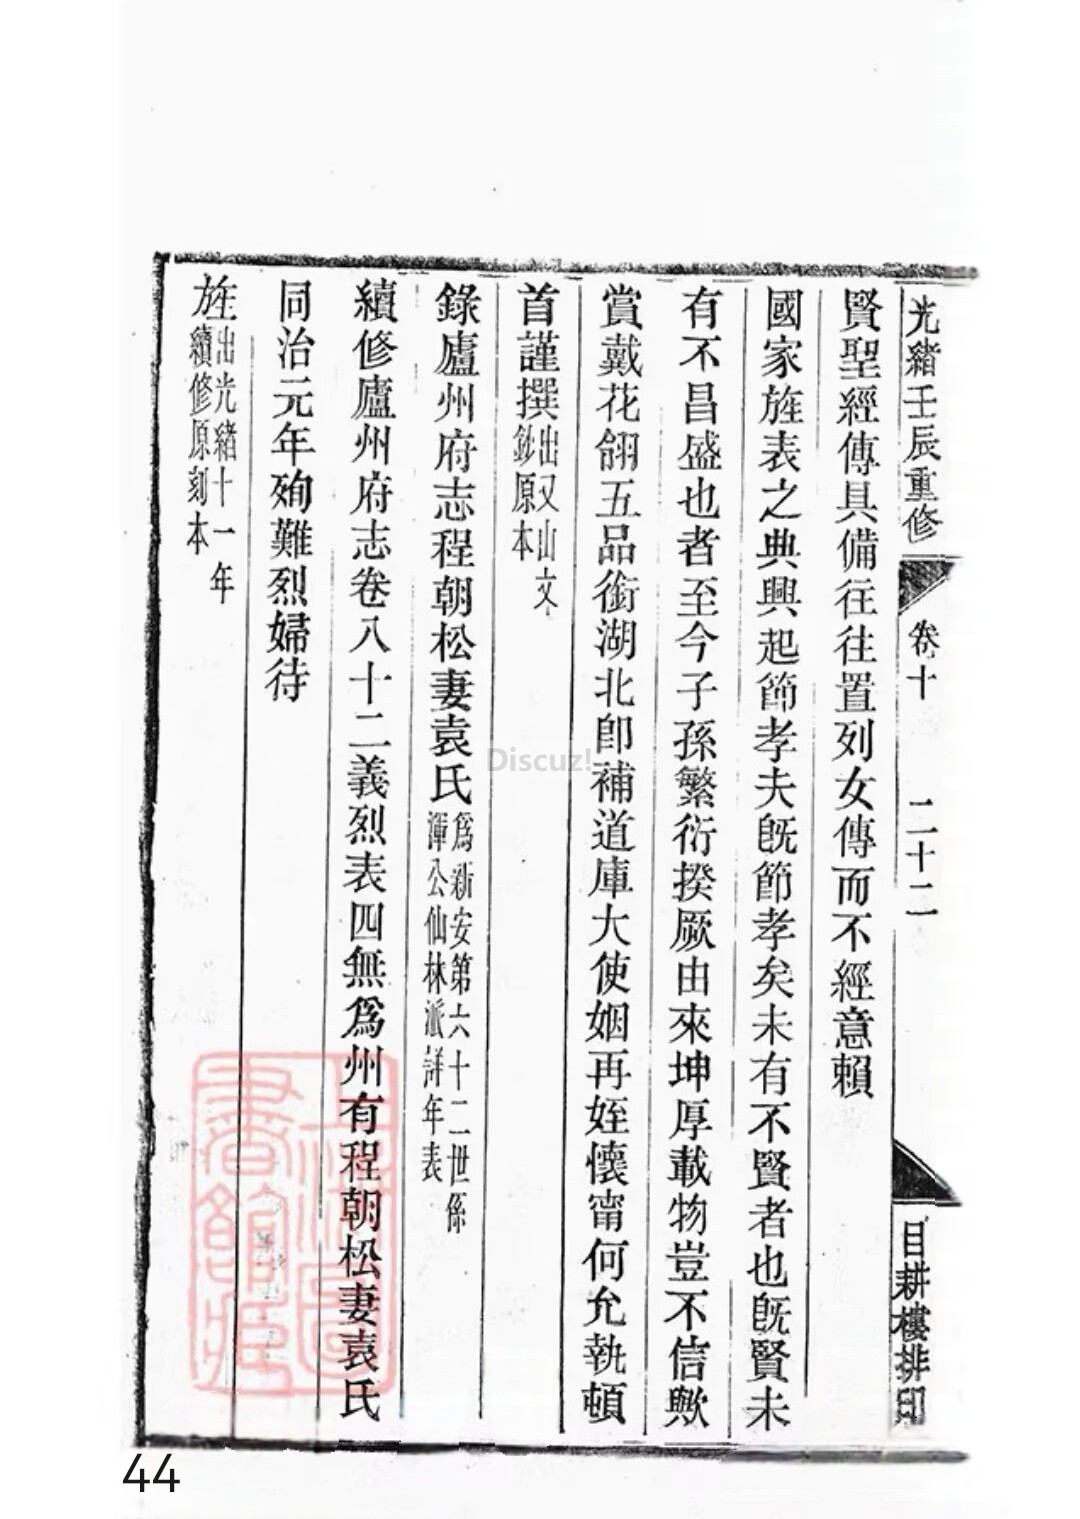 光緒壬辰重修
卷十
二十二
目耕樓排印
賢聖經傳具備往往置列女傳而不經意賴
國家旌表之典興起節孝夫既節孝矣未有不賢者也既賢未
有不昌盛也者至今子孫繁衍揆厥由來坤厚載物豈不信歟
賞戴花翎五品銜湖北即補道庫大使姻再姪懷甯何允執頓
首謹撰
出又山文
鈔原本
錄廬州府志程朝松妻袁氏
為新安第六十二世係
潭公仙林派詳年表
續修廬州府志卷八十二義烈表四無為州有程朝松妻袁氏
同治元年殉難烈婦待
旌
出光緒十一年
續修原刻本
Discuz!
上海圖
書館藏
44